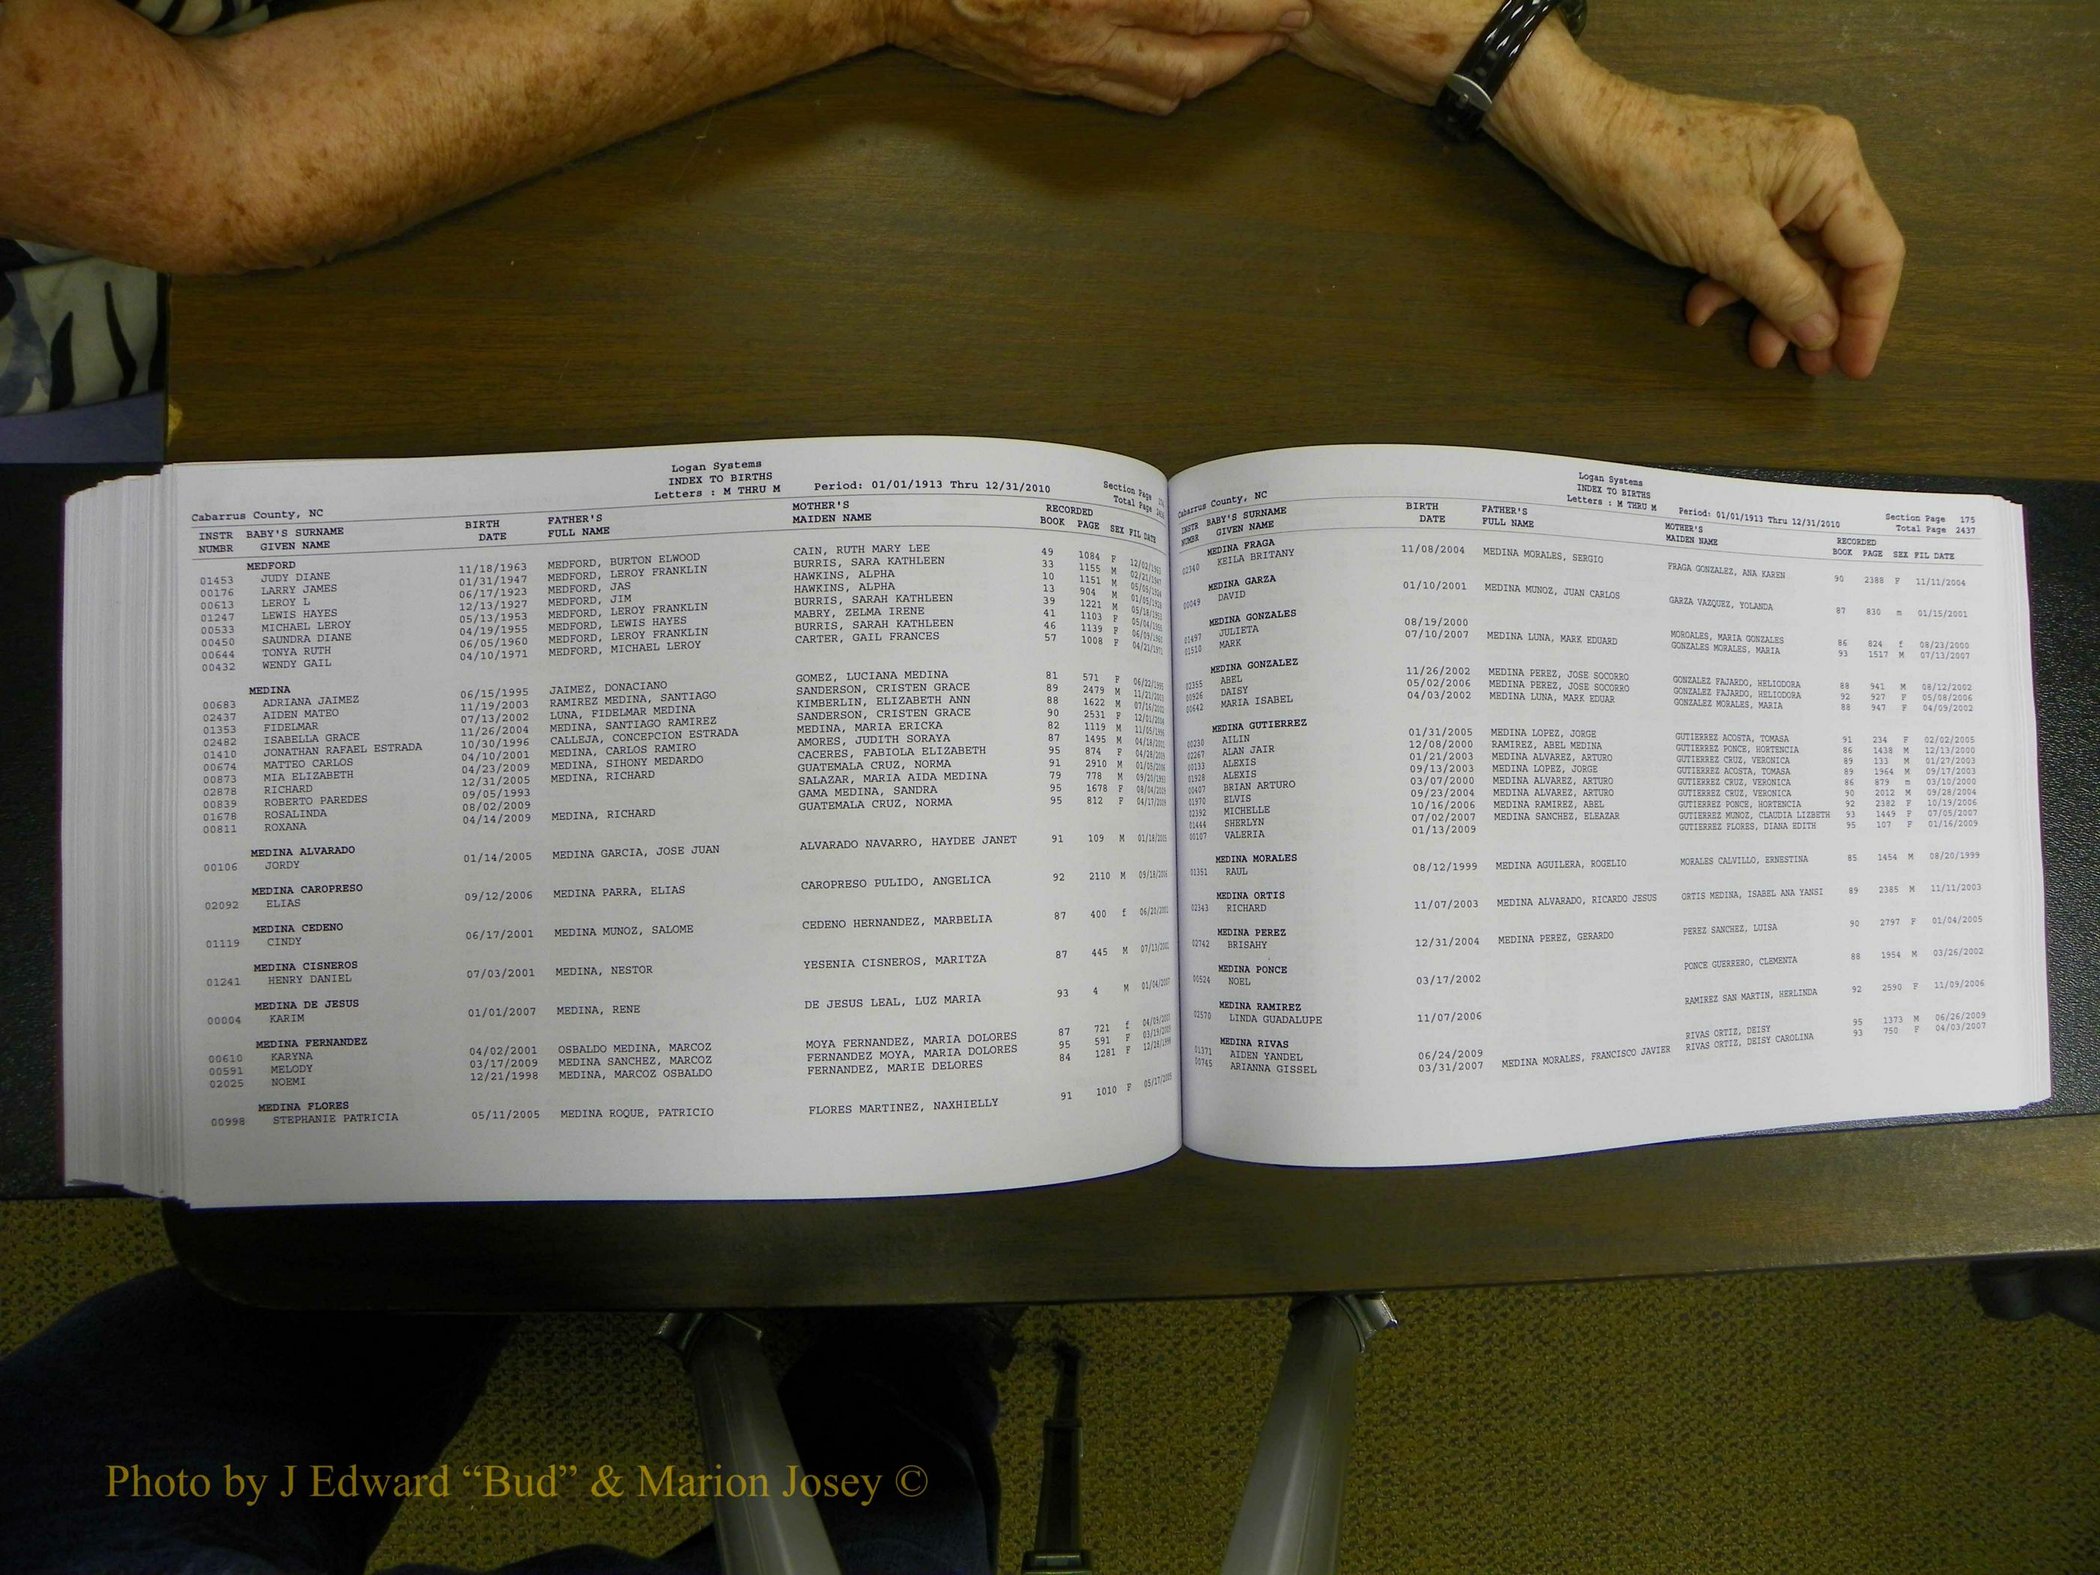 Logan Systems
INDEX TO BIRTHS
Letters : M THRU M Period: 01/01/1913 Thru 12/31/2010 Section Page
Cabarrus County, NC Total Page
INSTR BABY'S SURNAME BIRTH FATHER'S MOTHER'S RECORDED
NUMBR GIVEN NAME DATE FULL NAME MAIDEN NAME BOOK PAGE SEX FIL DATE
MEDFORD
01453 JUDY DIANE 11/18/1963 MEDFORD, BURTON ELWOOD CAIN, RUTH MARY LEE 49 1084 F 12/02/1963
00176 LARRY JAMES 01/31/1947 MEDFORD, LEROY FRANKLIN BURRIS, SARA KATHLEEN 33 1155 M 02/21/1947
00613 LEROY L 06/17/1923 MEDFORD, JAS HAWKINS, ALPHA 10 1151 M
01247 LEWIS HAYES 12/13/1927 MEDFORD, JIM HAWKINS, ALPHA 13 904 M 01/05/1928
00533 MICHAEL LEROY 05/13/1953 MEDFORD, LEROY FRANKLIN BURRIS, SARAH KATHLEEN 39 1221 M 05/18/1953
00450 SAUNDRA DIANE 04/19/1955 MEDFORD, LEWIS HAYES MABRY, ZELMA IRENE 41 1103 F
00644 TONYA RUTH 06/05/1960 MEDFORD, LEROY FRANKLIN BURRIS, SARAH KATHLEEN 46 1139 F 06/09/1960
00432 WENDY GAIL 04/10/1971 MEDFORD, MICHAEL LEROY CARTER, GAIL FRANCES 57 1008 F 04/21/1971
MEDINA
00683 ADRIANA JAIMEZ 06/15/1995 JAIMEZ, DONACIANO GOMEZ, LUCIANA MEDINA 81 571 F 06/22/1995
02437 AIDEN MATEO 11/19/2003 RAMIREZ MEDINA, SANTIAGO SANDERSON, CRISTEN GRACE 89 2479 M 11/21/2003
01353 FIDELMAR 07/13/2002 LUNA, FIDELMAR MEDINA KIMBERLIN, ELIZABETH ANN 88 1622 M 07/16/2002
02482 ISABELLA GRACE 11/26/2004 MEDINA, SANTIAGO RAMIREZ SANDERSON, CRISTEN GRACE 90 2531 F 12/01/2004
01410 JONATHAN RAFAEL ESTRADA 10/30/1996 CALLEJA, CONCEPCION ESTRADA MEDINA, MARIA ERICKA 82 1119 M 11/05/1996
00674 MATTEO CARLOS 04/10/2001 MEDINA, CARLOS RAMIRO AMORES, JUDITH SORAYA 87 1495 M 04/18/2001
00873 MIA ELIZABETH 04/23/2009 MEDINA, SIHONY MEDARDO CACERES, FABIOLA ELIZABETH 95 874 F 04/28/2009
02878 RICHARD 12/31/2005 MEDINA, RICHARD GUATEMALA CRUZ, NORMA 91 2910 M 01/05/2006
00839 ROBERTO PAREDES 09/05/1993 SALAZAR, MARIA AIDA MEDINA 79 778 M 09/20/1993
01678 ROSALINDA 08/02/2009 GAMA MEDINA, SANDRA 95 1678 F 08/04/2009
00811 ROXANA 04/14/2009 MEDINA, RICHARD GUATEMALA CRUZ, NORMA 95 812 F 04/17/2009
MEDINA ALVARADO
00106 JORDY 01/14/2005 MEDINA GARCIA, JOSE JUAN ALVARADO NAVARRO, HAYDEE JANET 91 109 M 01/18/2005
MEDINA CAROPRESO
02092 ELIAS 09/12/2006 MEDINA PARRA, ELIAS CAROPRESO PULIDO, ANGELICA 92 2110 M 09/18/2006
MEDINA CEDENO
01119 CINDY 06/17/2001 MEDINA MUNOZ, SALOME CEDENO HERNANDEZ, MARBELIA 87 400 f 06/20/2001
MEDINA CISNEROS
01241 HENRY DANIEL 07/03/2001 MEDINA, NESTOR YESENIA CISNEROS, MARITZA 87 445 M 07/13/2001
MEDINA DE JESUS
00004 KARIM 01/01/2007 MEDINA, RENE DE JESUS LEAL, LUZ MARIA 93 4 M 01/04/2007
MEDINA FERNANDEZ
00610 KARYNA 04/02/2001 OSBALDO MEDINA, MARCOZ MOYA FERNANDEZ, MARIA DOLORES 87 721 f 04/09/2001
00591 MELODY 03/17/2009 MEDINA SANCHEZ, MARCOZ FERNANDEZ MOYA, MARIA DOLORES 95 591 F 03/19/2009
02025 NOEMI 12/21/1998 MEDINA, MARCOZ OSBALDO FERNANDEZ, MARIE DELORES 84 1281 F 12/28/1998
MEDINA FLORES
00998 STEPHANIE PATRICIA 05/11/2005 MEDINA ROQUE, PATRICIO FLORES MARTINEZ, NAXHIELLY 91 1010 F 05/17/2005
Logan Systems
INDEX TO BIRTHS
Letters : M THRU M Period: 01/01/1913 Thru 12/31/2010 Section Page 175
Cabarrus County, NC Total Page 2437
INSTR BABY'S SURNAME BIRTH FATHER'S MOTHER'S RECORDED
NUMBR GIVEN NAME DATE FULL NAME MAIDEN NAME BOOK PAGE SEX FIL DATE
MEDINA FRAGA
02340 KEILA BRITANY 11/08/2004 MEDINA MORALES, SERGIO FRAGA GONZALEZ, ANA KAREN 90 2388 F 11/11/2004
MEDINA GARZA
00049 DAVID 01/10/2001 MEDINA MUNOZ, JUAN CARLOS GARZA VAZQUEZ, YOLANDA 87 830 m 01/15/2001
MEDINA GONZALES
01497 JULIETA 08/19/2000 MOROALES, MARIA GONZALES 86 824 f 08/23/2000
01510 MARK 07/10/2007 MEDINA LUNA, MARK EDUARD GONZALES MORALES, MARIA 93 1517 M 07/13/2007
MEDINA GONZALEZ
02355 ABEL 11/26/2002 MEDINA PEREZ, JOSE SOCORRO GONZALEZ FAJARDO, HELIODORA 88 941 M 08/12/2002
00926 DAISY 05/02/2006 MEDINA PEREZ, JOSE SOCORRO GONZALEZ FAJARDO, HELIODORA 92 927 F 05/08/2006
00642 MARIA ISABEL 04/03/2002 MEDINA LUNA, MARK EDUAR GONZALEZ MORALES, MARIA 88 947 F 04/09/2002
MEDINA GUTIERREZ
00230 AILIN 01/31/2005 MEDINA LOPEZ, JORGE GUTIERREZ ACOSTA, TOMASA 91 234 F 02/02/2005
02267 ALAN JAIR 12/08/2000 RAMIREZ, ABEL MEDINA GUTIERREZ PONCE, HORTENCIA 86 1438 M 12/13/2000
00133 ALEXIS 01/21/2003 MEDINA ALVAREZ, ARTURO GUTIERREZ CRUZ, VERONICA 89 133 M 01/27/2003
01928 ALEXIS 09/13/2003 MEDINA LOPEZ, JORGE GUTIERREZ ACOSTA, TOMASA 89 1964 M 09/17/2003
00407 BRIAN ARTURO 03/07/2000 MEDINA ALVAREZ, ARTURO GUTIERREZ CRUZ, VERONICA 86 879 m 03/10/2000
01970 ELVIS 09/23/2004 MEDINA ALVAREZ, ARTURO GUTIERREZ CRUZ, VERONICA 90 2012 M 09/28/2004
02392 MICHELLE 10/16/2006 MEDINA RAMIREZ, ABEL GUTIERREZ PONCE, HORTENCIA 92 2382 F 10/19/2006
01444 SHERLYN 07/02/2007 MEDINA SANCHEZ, ELEAZAR GUTIERREZ MUNOZ, CLAUDIA LIZBETH 93 1449 F 07/05/2007
00107 VALERIA 01/13/2009 GUTIERREZ FLORES, DIANA EDITH 95 107 F 01/16/2009
MEDINA MORALES
01351 RAUL 08/12/1999 MEDINA AGUILERA, ROGELIO MORALES CALVILLO, ERNESTINA 85 1454 M 08/20/1999
MEDINA ORTIS
02343 RICHARD 11/07/2003 MEDINA ALVARADO, RICARDO JESUS ORTIS MEDINA, ISABEL ANA YANSI 89 2385 M 11/11/2003
MEDINA PEREZ
02742 BRISAHY 12/31/2004 MEDINA PEREZ, GERARDO PEREZ SANCHEZ, LUISA 90 2797 F 01/04/2005
MEDINA PONCE
00524 NOEL 03/17/2002 PONCE GUERRERO, CLEMENTA 88 1954 M 03/26/2002
MEDINA RAMIREZ
02570 LINDA GUADALUPE 11/07/2006 RAMIREZ SAN MARTIN, HERLINDA 92 2590 F 11/09/2006
MEDINA RIVAS
01371 AIDEN YANDEL 06/24/2009 RIVAS ORTIZ, DEISY 95 1373 M 06/26/2009
00745 ARIANNA GISSEL 03/31/2007 MEDINA MORALES, FRANCISCO JAVIER RIVAS ORTIZ, DEISY CAROLINA 93 750 F 04/03/2007
Photo by J Edward “Bud” & Marion Josey ©